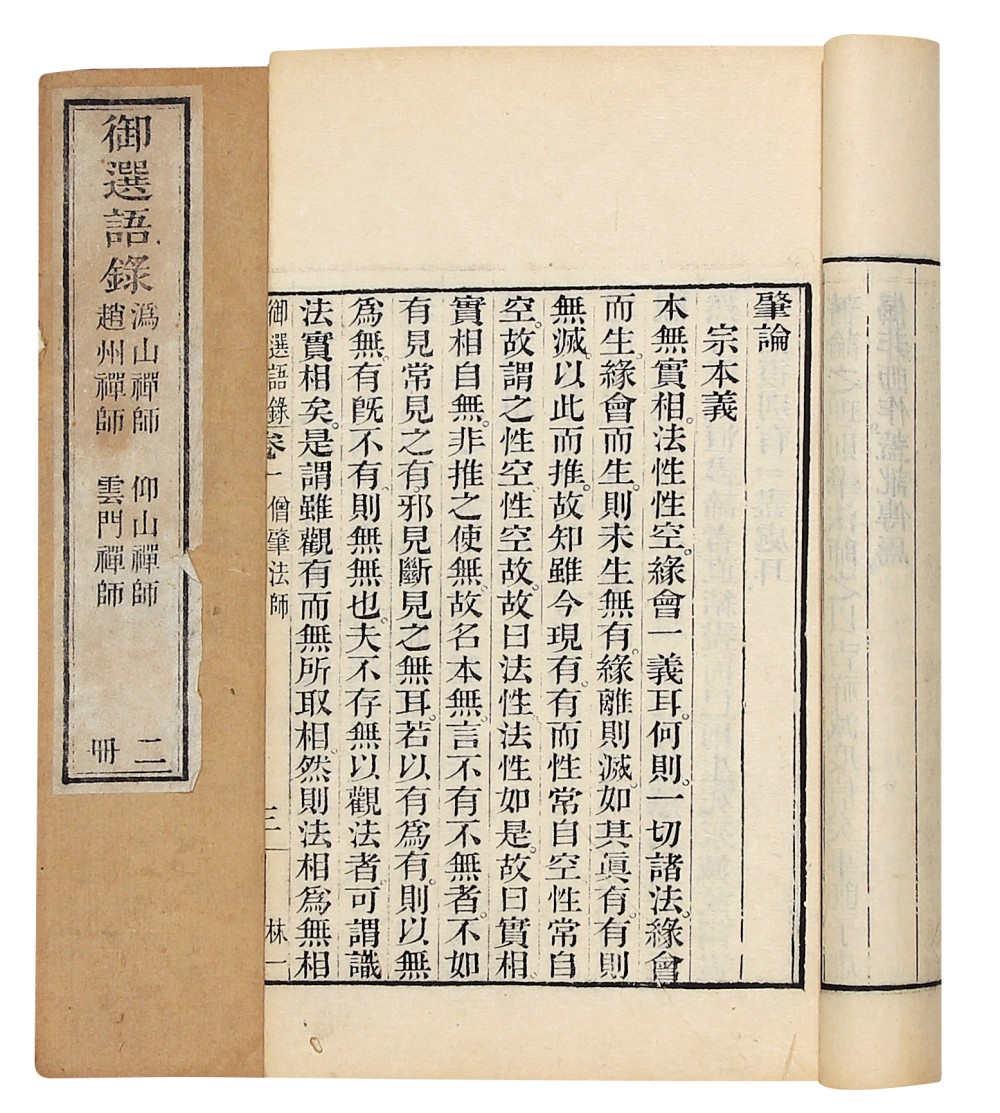 肇論
宗本義
本無實相。法性性空。緣會一義耳。何則。一切諸法。緣會
而生。緣會而生。則未生無有。緣離則滅。如其眞有。有則
無滅。以此而推。故知雖今現有。有而性常自空。性常自
空。故謂之性空。性空故。故曰法性。法性如是。故曰實相。
實相自無。非推之使無。故名本無。言不有不無者。不如
有見常見之有。邪見斷見之無耳。若以有爲有。則以無
爲無。有旣不有。則無無也。夫不存無以觀法者。可謂識
法實相矣。是謂雖觀有而無所取相。然則法相爲無相
御選語錄 卷一 僧肇法師 三 林一
御選語錄
潙山禪師 仰山禪師
趙州禪師 雲門禪師
二
冊